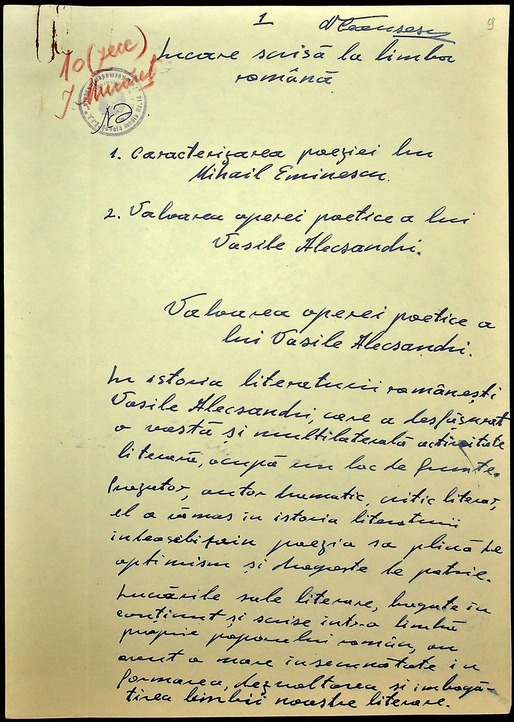 1
NCeausescu
9
10 (zece)
Lucrare scrisă la limba
română
1. Caracterizarea poeziei lui
Mihail Eminescu.
2. Valoarea operei poetice a lui
Vasile Alecsandri.
Valoarea operei poetice a
lui Vasile Alecsandri.
In istoria literaturii românești
Vasile Alecsandri, care a desfășurat
o vastă și multilaterală activitate
literară, ocupă un loc de frunte.
Prozator, autor dramatic, critic literar,
el a rămas in istoria literaturii
indeosebi prin poezia sa plină de
optimism și dragoste de patrie.
Lucrările sale literare, bogate in
conținut și scrise intr-o limbă
proprie poporului român, au
avut o mare insemnătate in
formarea, dezvoltarea și imbogă-
țirea limbii noastre literare.